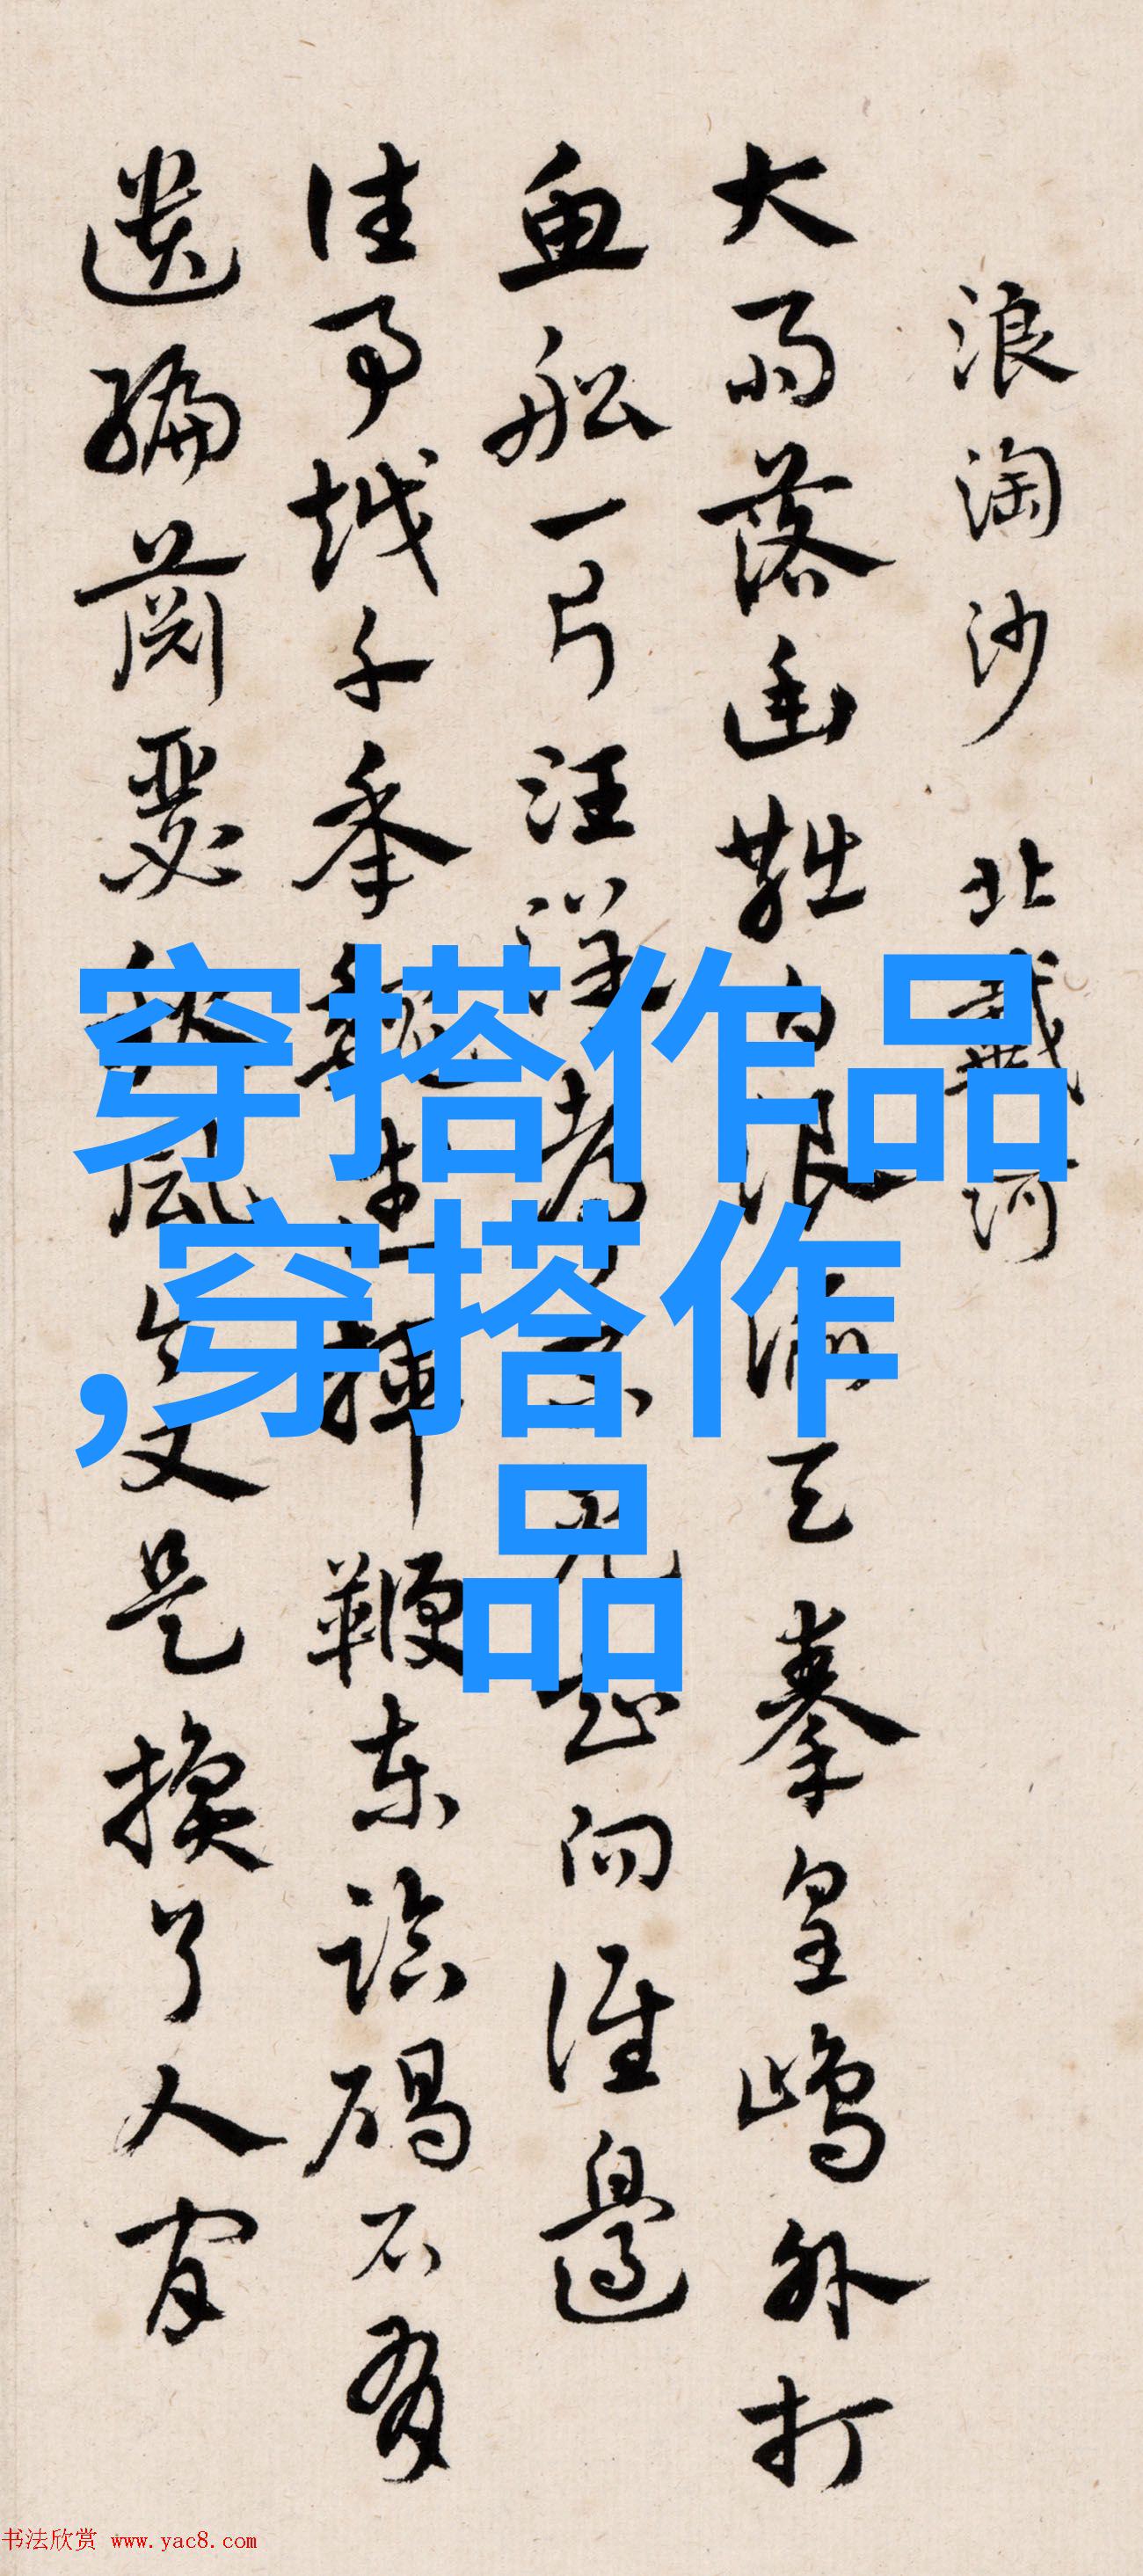 浪淘沙 北戴河
大雨落幽燕白浪滔天秦皇島外打
魚船一片汪洋都不見知向誰邊
往事越千秊魏武揮鞭東臨碣石有
遺編蕭瑟秋風今又是換了人間
穿搭作品
,穿搭作
品
书法欣赏 www.yac8.com